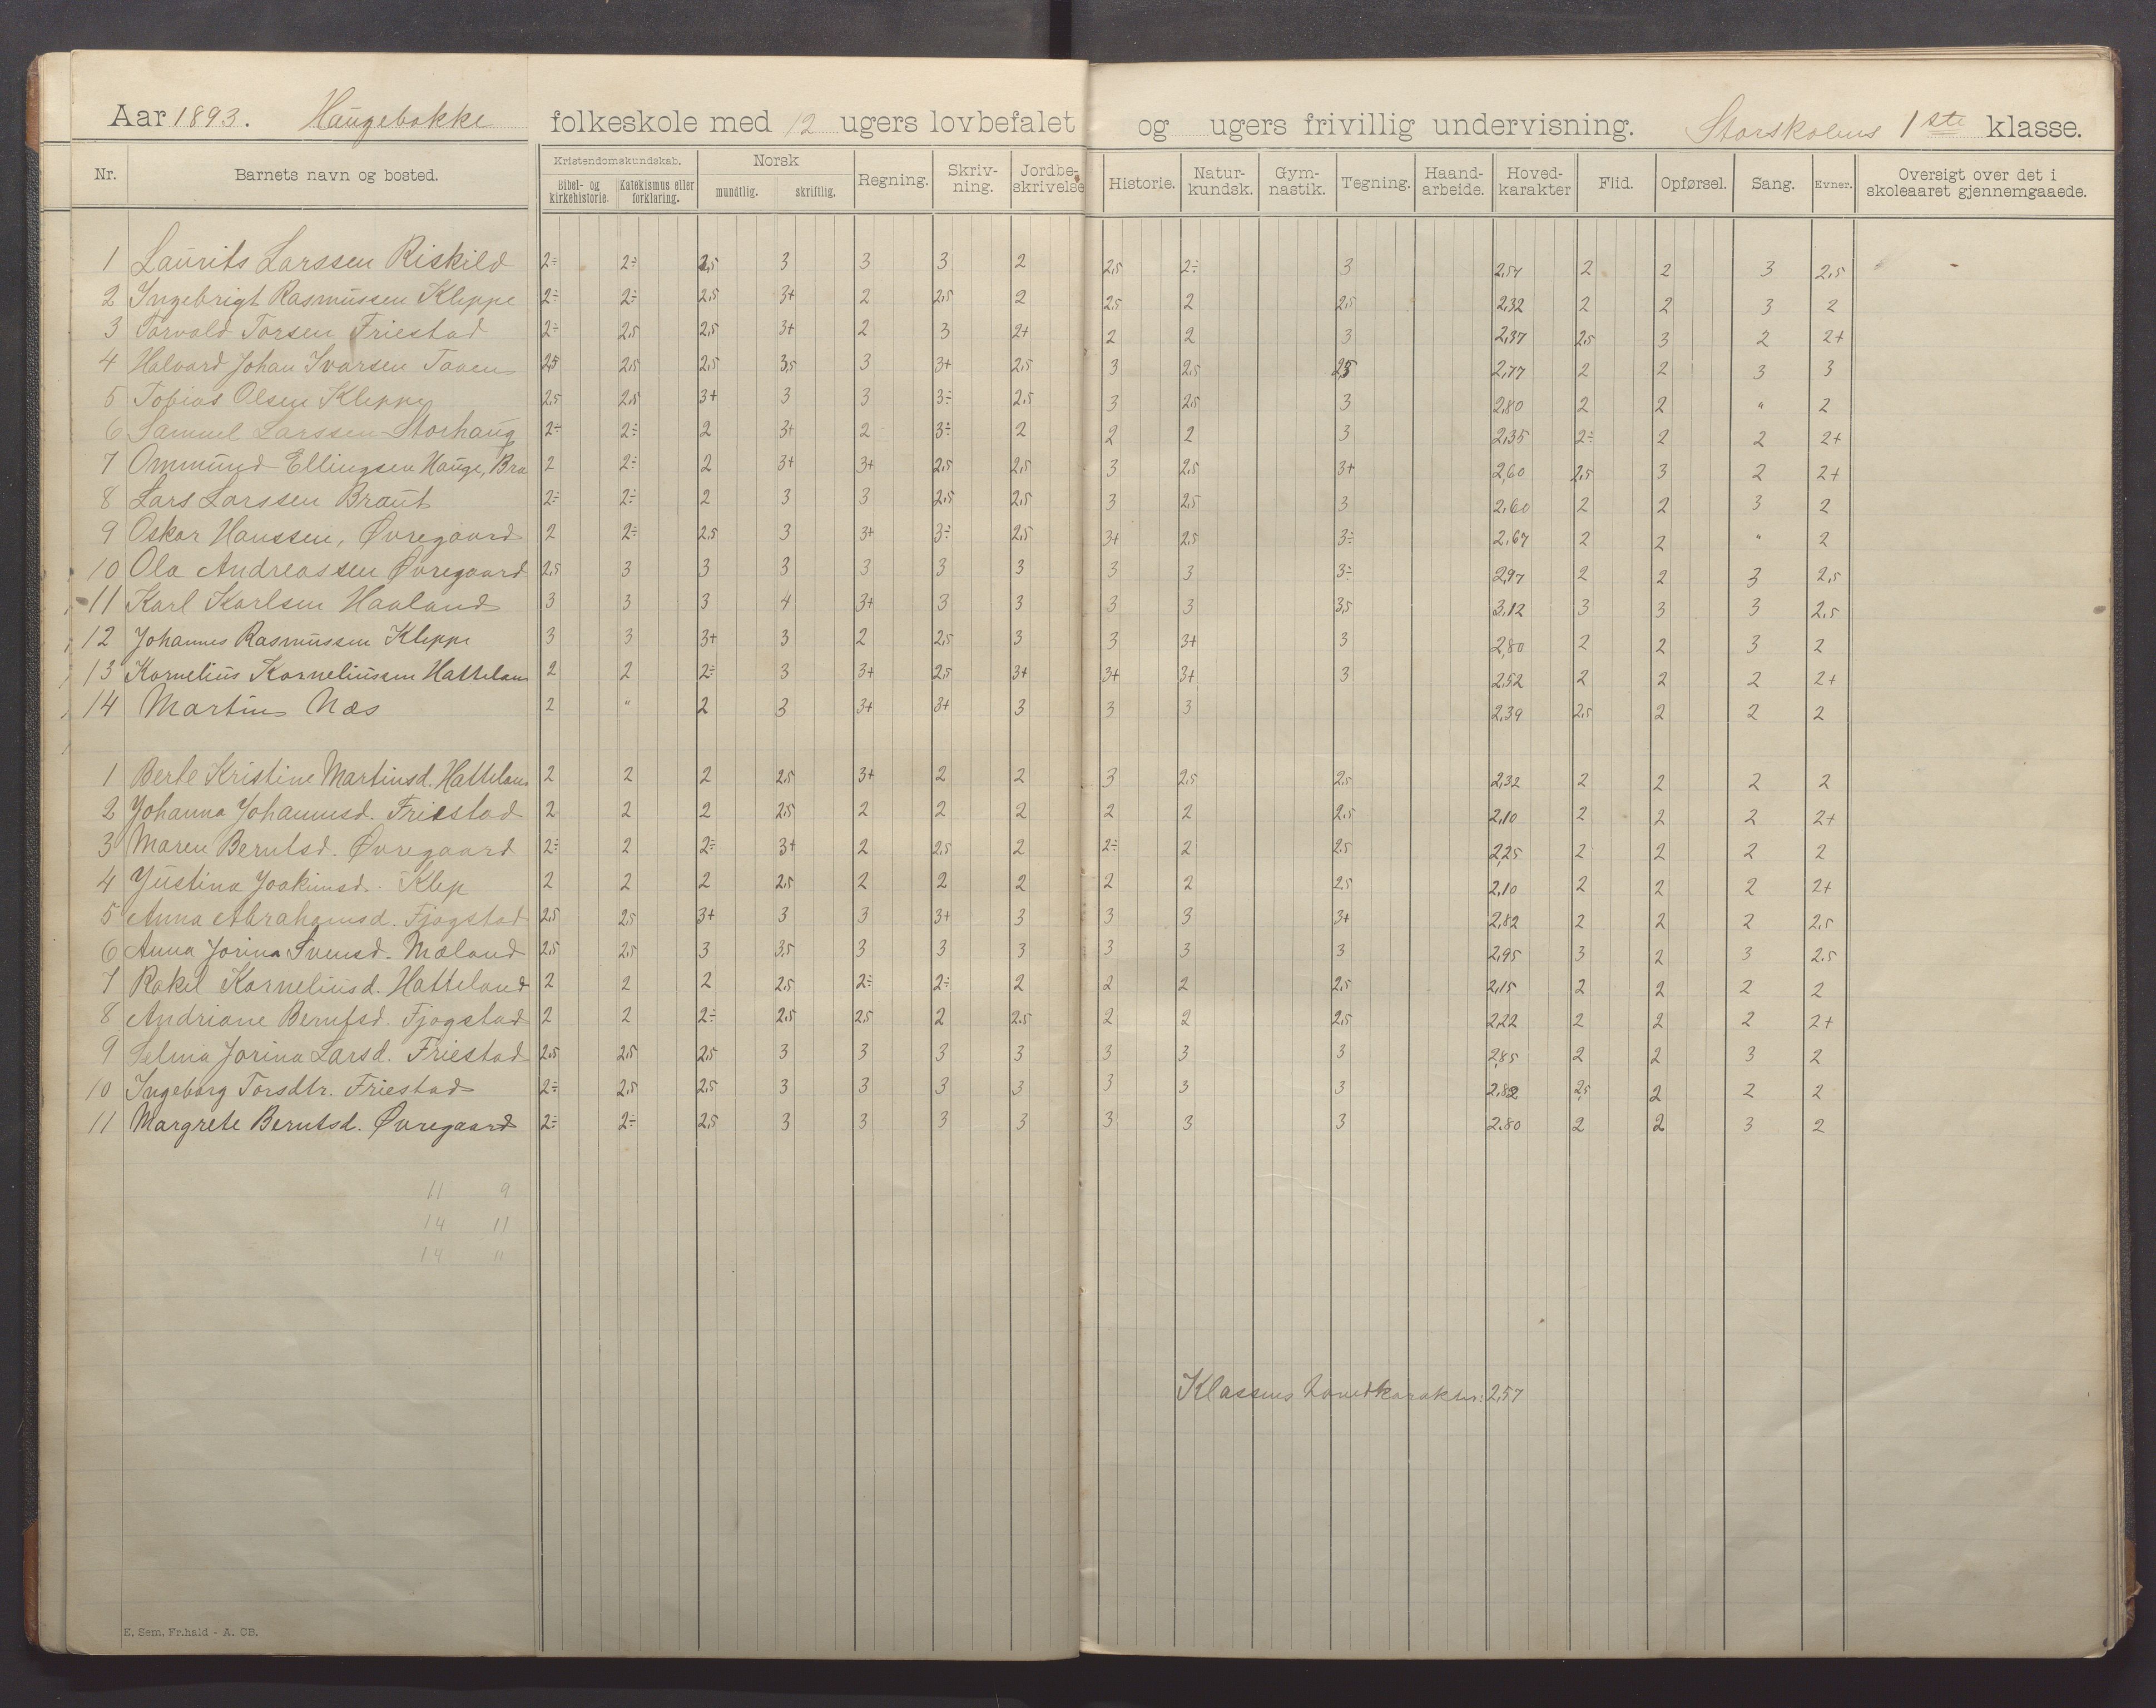 Aar 1893. Haugebakke folkeskole med 12 ugers lovbefalet og ugers frivillig undervisning. Storskolens 1ste klasse.
Nr. Barnets navn og bosted. Kristendomskundskab. Bibel- og kirkehistorie. Katekismus eller forklaring. Norsk mundtlig. skriftlig. Regning. Skriv-ning. Jordbe-skrivelse Historie. Natur-kundsk. Gym-nastik. Tegning. Haand-arbeide. Hoved-karakter Flid. Opførsel. Sang. Evner. Oversigt over det i skoleaaret gjennemgaaede.
1 Laurits Larssen Riskild 2÷ 2÷ 2,5 3 3 3 2 2,5 2÷ 3 2,57 2 2 3 2,5
2 Ingebrigt Rasmussen Kleppe 2÷ 2÷ 2,5 3+ 2 2,5 2 2,5 2 2,5 2,32 2 2 3 2
3 Torvald Torsen Friestad 2÷ 2,5 2,5 3+ 2 3 2+ 2 2 3 2,37 2,5 3 2 2+
4 Halvard Johan Ivarsen Taaen 2,5 2,5 2,5 3,5 3 3+ 2,5 3 2,5 2,5 2,77 2 2 3 3
5 Tobias Olsen Kleppe 2,5 2,5 3+ 3 3 3÷ 2,5 3 2,5 3 2,80 2 2 " 2
6 Samuel Larssen Storhaug 2÷ 2÷ 2 3+ 2 3÷ 2 2 2 3 2,35 2÷ 2 2 2+
7 Ommund Ellingsen Hauge, Bra 2 2÷ 2 3+ 3+ 2,5 2,5 3 2,5 3+ 2,60 2,5 3 2 2+
8 Lars Larssen Braut 2÷ 2÷ 2 3 3 2,5 2,5 3 2,5 3 2,60 2 2 3 2
9 Oskar Hanssen, Øvregaard 2 2÷ 2,5 3 3+ 3÷ 2,5 3+ 2,5 3÷ 2,67 2 2 " 2
10 Ola Andreassen Øvregaard 2,5 3 3 3 3 3 3 3 3 3÷ 2,97 2 2 3 2,5
11 Karl Karlsen Haaland 3 3 3 4 3+ 3 3 3 3 3,5 3,12 3 3 3 2,5
12 Johannes Rasmussen Kleppe 3 3 3+ 3 2 2,5 3 3 3+ 3 2,80 2 2 3 2
13 Kornelius Korneliussen Hattelan 2 2 2÷ 3 3+ 2,5 3+ 3+ 3+ 3 2,52 2 2 2 2+
14 Martin Næs 2 " 2 3 3+ 3+ 3 3 3 2,39 2,5 2 2 2
1 Berte Kristine Martinsd. Hattelan 2 2 2 2,5 3+ 2 2 3 2,5 2,5 2,32 2 2 2 2
2 Johanna Johannesd. Friestad 2 2 2 2,5 2 2 2 2 2 2,5 2,10 2 2 2 2+
3 Maren Berntsd. Øvregaard 2÷ 2 2÷ 3+ 2 2,5 2 2÷ 2 2,5 2,25 2 2 2 2
4 Justina Joakimsd. Klep 2 2 2 2,5 2 2 2 2 2 2,5 2,10 2 2 2 2+
5 Anna Abrahamsd. Fjogstad 2,5 2,5 3+ 3 3 3+ 3 3 3 3+ 2,82 2 2 2 2,5
6 Anna Jorina Svensd. Mæland 2,5 2,5 3 3,5 3 3 3 3 3 3 2,95 3 2 3 2,5
7 Rakel Korneliusd. Hatteland 2 2 2 2,5 2÷ 2÷ 2 2 2 2,5 2,15 2 2 2 2
8 Andriane Berntsd. Fjogstad 2 2 2÷ 2,5 2,5 2 2,5 2 2 2,5 2,22 2 2 2 2+
9 Selma Jorina Larsd. Friestad 2,5 2,5 2,5 3 3 3 3 3 3 3 2,85 2 2 3 2
10 Ingeborg Torsdtr. Friestad 2÷ 2,5 2,5 3 3 3 3 3 3 3 2,82 2,5 2 2 2
11 Margrete Berntsd. Øvregaard 2÷ 2÷ 2,5 3 3 3 3 3 3 3 2,80 2 2 3 2
11 9
14 11
14 11
Klassens hovedkarakter: 2,57
E. Sem, Fr.hald - A. CB.